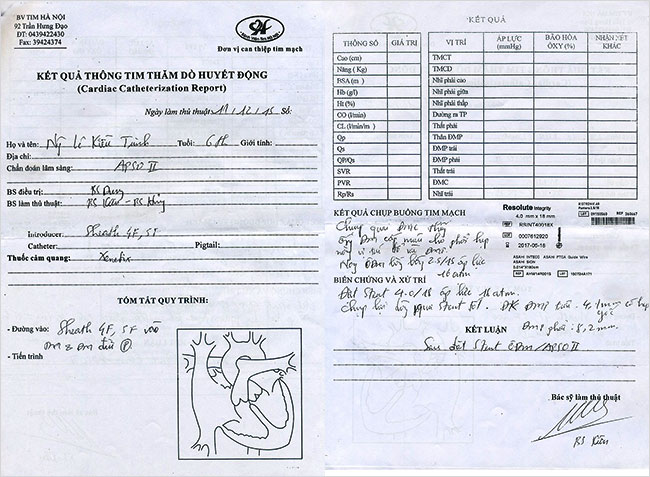 BV TIM HÀ NỘI
92 Trần Hưng Đạo
ĐT: 0439422430
Fax: 39424374
Đơn vị can thiệp tim mạch
KẾT QUẢ THÔNG TIM THĂM DÒ HUYẾT ĐỘNG
(Cardiac Catheterization Report)
Ngày làm thủ thuật 11/12/15 Số:
Họ và tên: Lê Kiều Trinh Tuổi: 6th Giới tính:
Địa chỉ:
Chẩn đoán lâm sàng: APSO II
BS điều trị: BS Dung
BS làm thủ thuật: BS Kiên - BS
Introducer: Sheath 4F, 5F
Catheter: Pigtail:
Thuốc cản quang: Xenetix
TÓM TẮT QUY TRÌNH:
- Đường vào: Sheath 4F, 5F vào
ĐM & TM đùi P
- Tiến trình
KẾT QUẢ
THÔNG SỐ GIÁ TRỊ VỊ TRÍ ÁP LỰC (mmHg) BÃO HÒA ÔXY (%) NHẬN XÉT KHÁC
Cao (cm) TMCT
Nặng ( Kg) TMCD
BSA (m ) Nhĩ phải cao
Hb (g/l) Nhĩ phải giữa
Ht (%) Nhĩ phải thấp
CO (l/min) Đường ra TP
CL (l/min/m ) Thất phải
Qp Thân ĐMP
Qs ĐMP trái
QP/Qs ĐMP phải
SVR Thất trái
PVR ĐMC
Rp/Rs Nhĩ trái
KẾT QUẢ CHỤP BUỒNG TIM MẠCH
Resolute Integrity
4.0 mm x 18 mm
RSINT40018X
0007612920
2017-06-16
ASAHI INTECC ASAHI PTCA Guide Wire
ASAHI SION
Chụp quai ĐMC thấy
ống ĐM cấp máu cho phổi hẹp
Nong ÔĐM bằng bóng 2.5/15 áp lực
16 atm
BIẾN CHỨNG VÀ XỬ TRÍ
Đặt Stent 4.0/18 áp lực 16 atm.
Chụp lại dòng qua Stent tốt. ĐK ĐMP trái: 4,1mm có hẹp
gốc
ĐMP phải: 5,2mm.
KẾT LUẬN
Sau đặt Stent ÔĐM/APSO II
Bác sỹ làm thủ thuật
BS Kiên